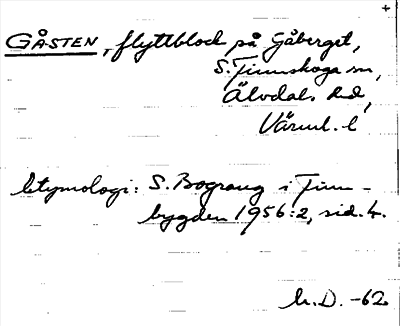 +
GÅSTEN, flyttblock på Gåberget,
S. Finnskoga sn,
Älvdals hd,
Värml. l.
Etymologi: S. Bograng i Finn-
bygden 1956:2, sid. 4.
h. D. -62.